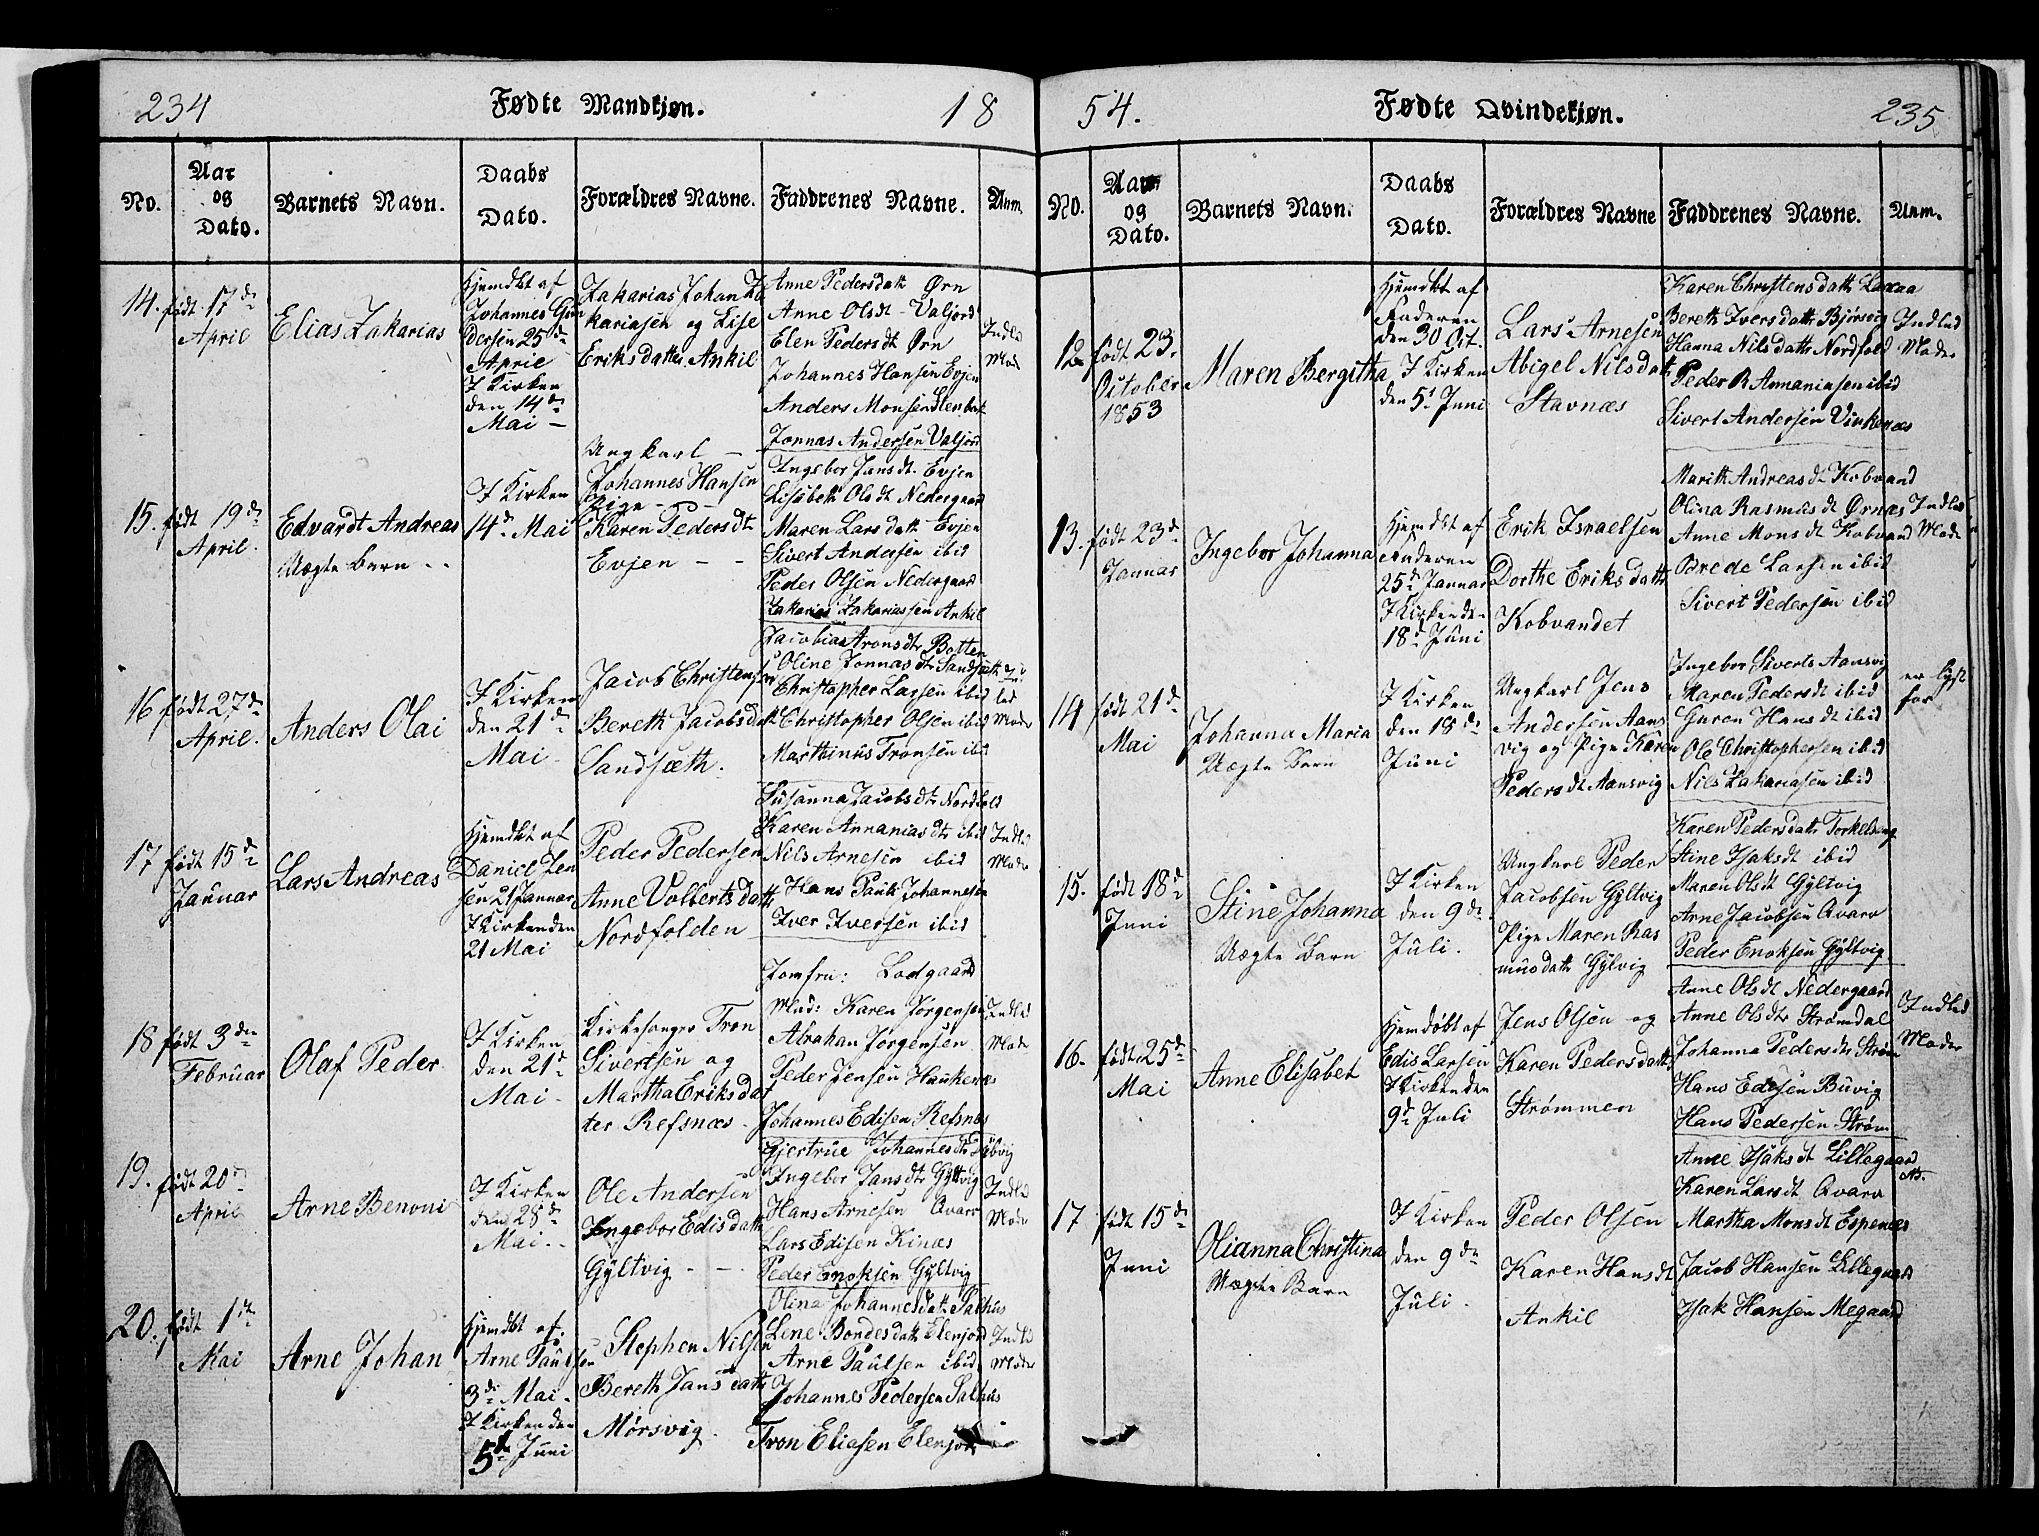 234
Fødte Mandkjøn.
18
No.
Aar og Dato.
Barnets Navn.
Daabs Dato.
Forældres Navne.
Faddrenes Navne.
Anm.
14. født 17de April
Elias Zakarias
Hjemdbt af
Johannes
dersen 25de
April
I Kirken
den 14de
Mai –
Zakarias Johan Za
kariasen og Lise
Eriksdatter Ankil
Anne Pedersdatt Ørn
Anne Olsdt – Valjord
Elen Pedersdt Ørn
Johannes Hansen Evjen
Anders Monsen
Jonnas Andersen Valjord
Indld
Mode
15. født 19de April.
Edvardt Andreas
Uægte barn – –
I Kirken
14de Mai
Ungkarl –
Johannes Hansen
Pige – –
Karen Pedersdt
Evjen – –
Ingebor Jansdt. Evjen
Lisabeth Olsdt Nedergaard
Maren Larsdatt Evjen
Sivert Andersen ibid
Peder Olsen Nedergaard
Zakarias Zakariassen Ankil
16 født 27de April.
Anders Olai
I Kirken
den 21de
Mai –
Jacob Christensen
Bereth Jacobsdatt
Sandsæth.
Jacobia Aronsdt Botten
Oline Jonnasdtr Sandsæth
Christopher Larsen ibid
Christopher Olsen ibid
Marthinus Tronsen ibid
Ind
led
Moder
17 født 15de Januar
Lars Andreas
Hjemdbt af
Daniel Jen
sen 21 Januar
I Kirken den
21 Mai
Peder Pedersen
Anne Volbertsdatt
Nordfolden
Susanna Jacobsdtr Nordfold
Karen Annaniasdtr ibid
Nils Arnesen ibid
Hans Pauls Johannesen
Iver Iversen ibid
Indld
Mode
18 født 3den Februar
Olaf Peder
I Kirken
den 21de
Mai –
Kirkesanger Tron
Sivertsen og
Martha Eriksdat
ter Refsnæs –
Jomfru: Lodgaard
Mad: Karen Jørgensen
Abrahan Jørgensen
Peder Jensen Haukenæs
Johannes Edisen Refsnæs
Indld
Mode
19. født 20de April
Arne Benoni
I Kirken
den 28de
Mai –
Ole Andersen
Ingebor Edisdatt
Gyltvig – –
Gjertrue Johannesdtr
Ingebor Jansdt Gyltvig
Hans Arnesen Qvarv
Lars Edisen Kinæs
Peder Enoksen Gyltvig
Indld
Mode
20. født 1ste Mai
Arne Johan
Hjemdbt af.
Arne Paulsen
3de Mai –
I Kirken den
5te Juni
Stephen Nilsen
Bereth Jansdatt
Mørsvig.
Olina Johannesdatt Salhus
Lene Bondesdatt Elenjord
Arne Paulsen ibid
Johannes Pedersen Salhus
Tron Eliasen Elenjord
Indld
Moder
54.
Fødte Qvindekjøn.
235
No.
Aar og Dato.
Barnets Navn.
Daabs Dato.
Forældres Navne
Faddrenes Navne.
Anm.
12 født 23. October 1853
Maren Bergitha
Hjemdbt af
Faderen
den 30 Oct.
I Kirken
den 5t Juni
Lars Arnesen
Abigel Nilsdatt
Stavnæs
Karen Christensdatt Laxaa
Bereth Iversdatt Bjørsvig
Hanna Nilsdattr Nordfold
Peder R Annaniasen ibid
Sivert Andersen Vinkenæs
Indled
Moder
13. født 23de Jannar
Ingebor Johanna
Hjemdbt af
Faderen
25de Jannar
I Kirken den
18de Juni
Erik Israelsen
Dorthe Eriksdatt
Kobvandet
Marith Andreasdt Kobvand
Olina Rasmusdt Ørnæs
Anne Monsdt Kobvand
Brede Larsen ibid
Sivert Pedersen ibid
Indled
Mode
14 født 21de Mai
Johanna Maria
Uægte Barn
I Kirken
den 18de
Juni
Ungkarl Jens
Andersen Aans
vig og Pige Karen
Pedersdt Aansvig
Ingebor Siverts Aansvig
Maren Pedersdt ibid
Guren Hansdt ibid
Ole Christophersen ibid
Nils Zakariasen ibid
er lyst
for
15. født 18de Juni
Stine Johanna
Uægte Barn
I Kirken
den 9de
Juli.
Ungkarl Peder
Jacobsen Gyltvig
Pige Maren Ras
musdatt Gyltvig
Karen Pedersdatt
Stine Isaksdt ibid
Maren Olsdt Gyltvig
Arne Jacobsen Qvarv
Peder Enoksen Gyltvig
16. født 25de Mai
Anne Elisabet
Hjemdøbt af
Edis Larsen
I Kirken den
9de Juli
Jens Olsen og
Karen Pedersdatt
Strømmen
Anne Olsdt Nedergaard
Anne Olsdtr Strømdal
Johanna Pedersdtr Strøm
Hans Edisen Buvig
Hans Pedersen Strøm
Indled
Moder
17 født 15de Juni
Olianna Christina
Uægte Barn
I Kirken
den 9de
Juli.
Peder Olsen
Karen Hansdt
Ankil
Anne Isaksdt Lillegaard
Karen Larsdt Qvarv
Martha Monsdt Espenæs
Jacob Hansen Lillegaard
Isak Hansen Megaard